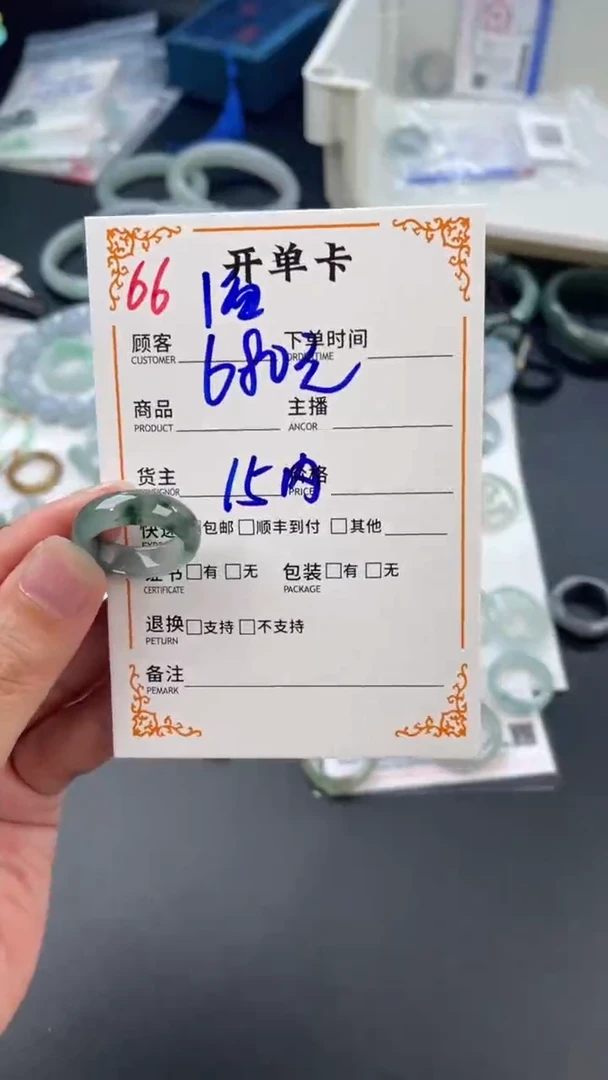 开单卡
66
680元
顾客 下单时间
CUSTOMER TIME
商品 主播
PRODUCT ANCOR
货主 15内 格
PRICE
快递 包邮 顺丰到付 其他
证书 有 无 包装 有 无
CERTIFICATE PACKAGE
退换 支持 不支持
PETURN
备注
PEMARK